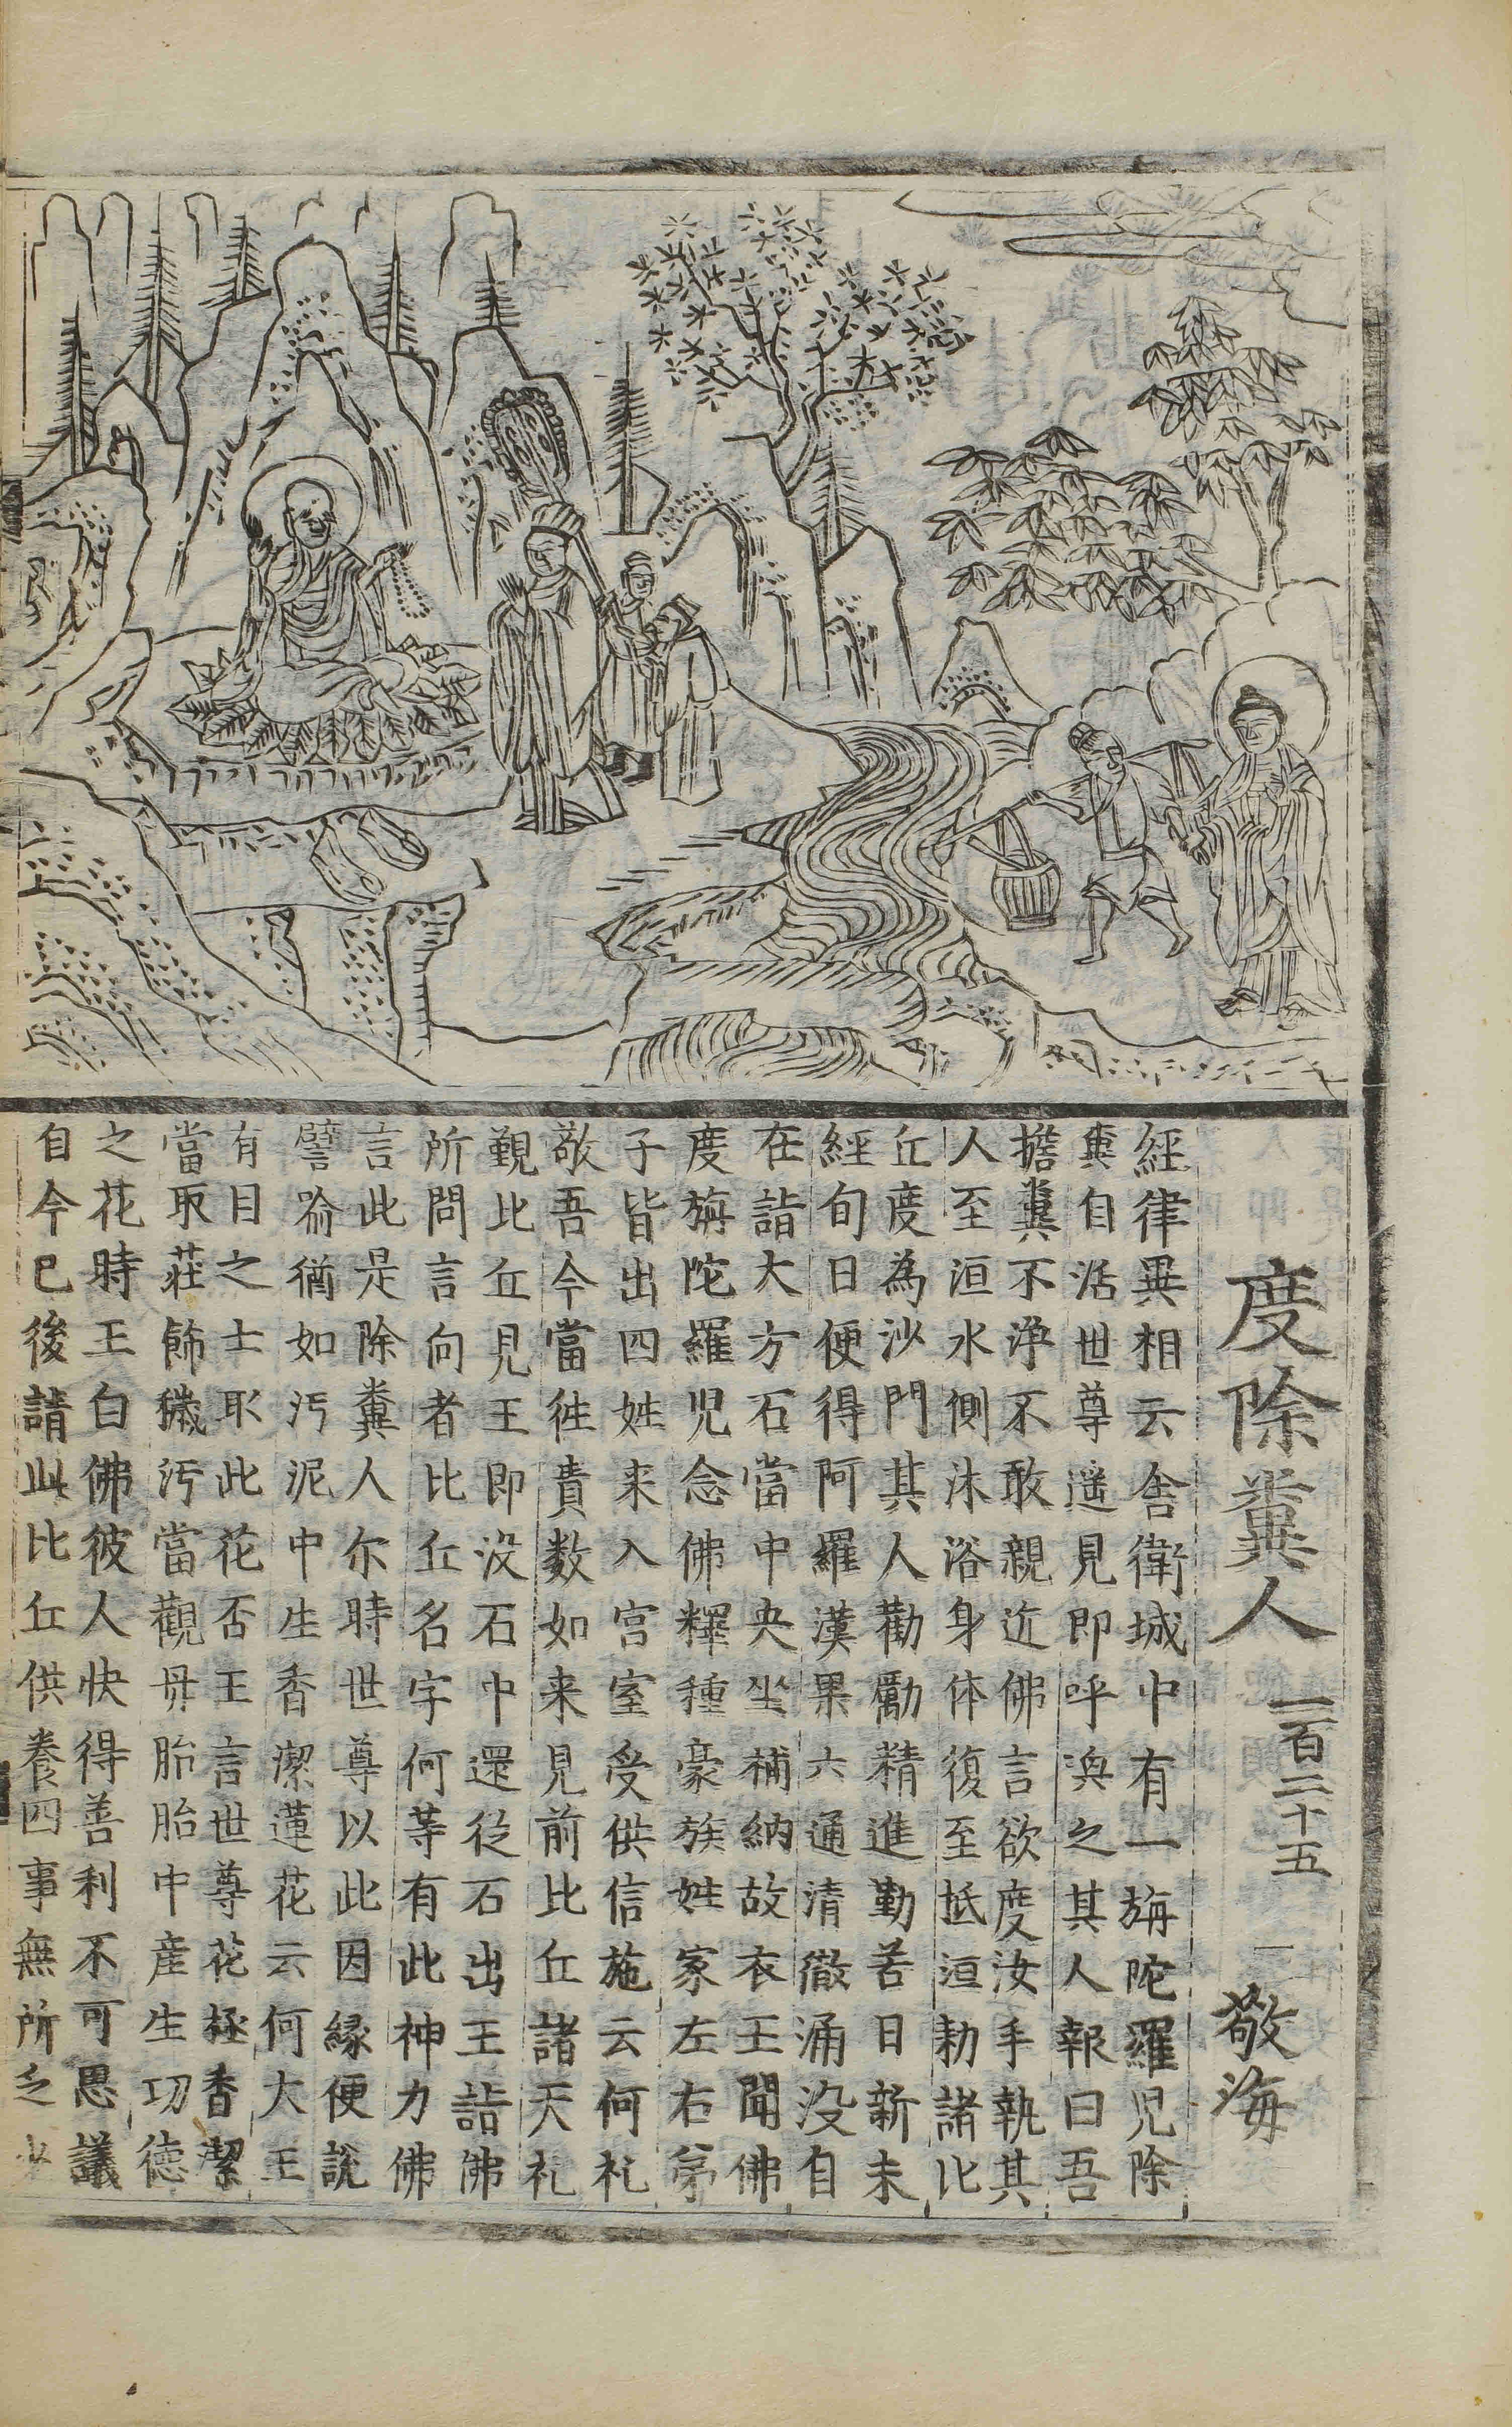 度除糞人 一百二十五 敬海
經律異相云舍衛城中有一旃陀羅児除
糞自活世尊遥見即呼渙之其人報曰吾
擔糞不淨不敢親近佛言欲度汝手執其
人至洹水側沐浴身体復至祇洹勑諸比
丘度為沙門其人勸勵精進勤苦日新未
經旬日便得阿羅漢果六通清徹涌没自
在詣大方石當中央坐補納故衣王聞佛
度旃陀羅児念佛釋種豪族姓家左右弟
子皆出四姓来入宫室受供信施云何礼
敬吾今當徃責数如来見前比丘諸天礼
覲比丘見王即没石中還從石出王詣佛
所問言向者比丘名字何等有此神力佛
言此是除糞人尔時世尊以此因緣便說
譬喻猶如汚泥中生香潔蓮花云何大王
有目之士取此花否王言世尊花極香潔
當取莊飾穢汚當觀毋胎胎中産生功德
之花時王白佛彼人快得善利不可思議
自今已後請此比丘供養四事無所乏少